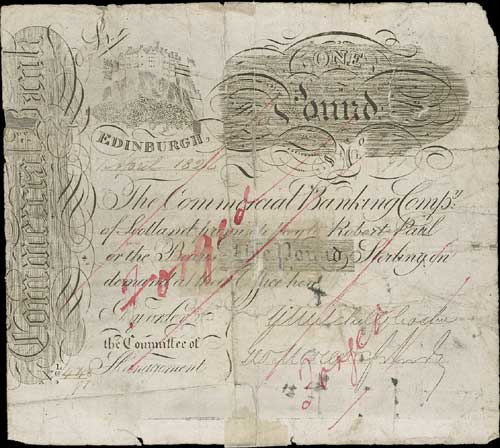 Commercial Bank
ONE
Pound
EDINBURGH,
No
April 182
The Commercial Banking Compy.
of Scotland promise to pay to Robert Paul
or the Bearer One Pound Sterling, on
demand at their Office here
By order of
the Committee of
Management
Forged
Forged